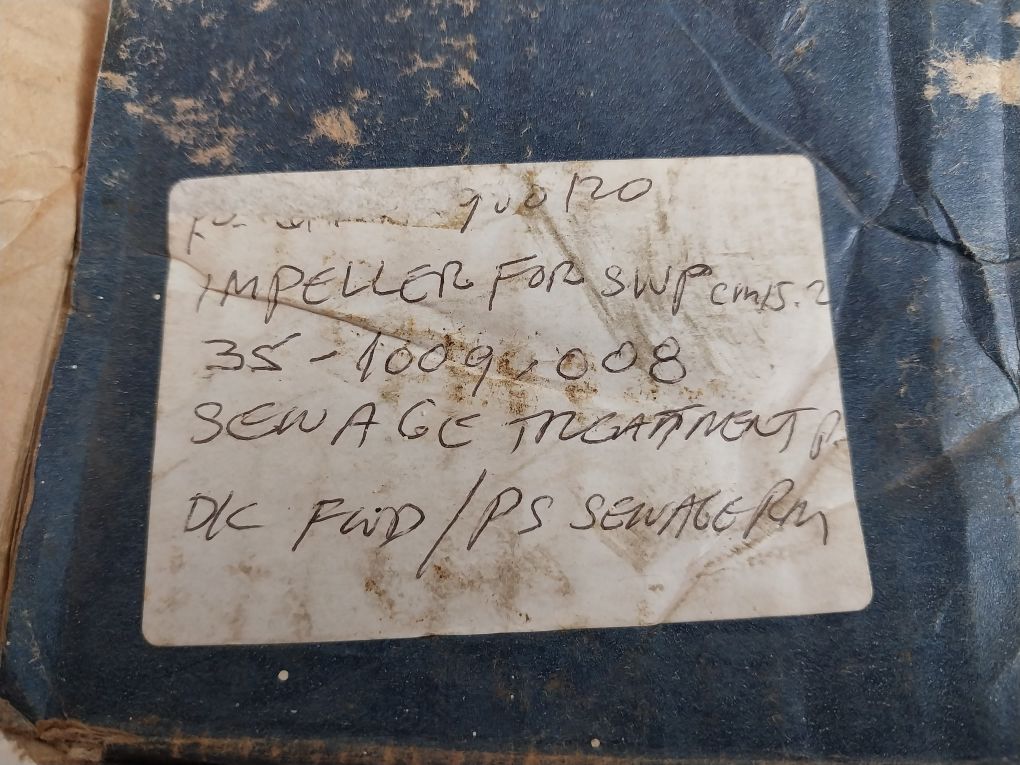 900120
IMPELLER FOR SWP cm15.2
35-1009.008
SEWAGE TREATMENT P
D/C FWD/PS SEWAGE RM